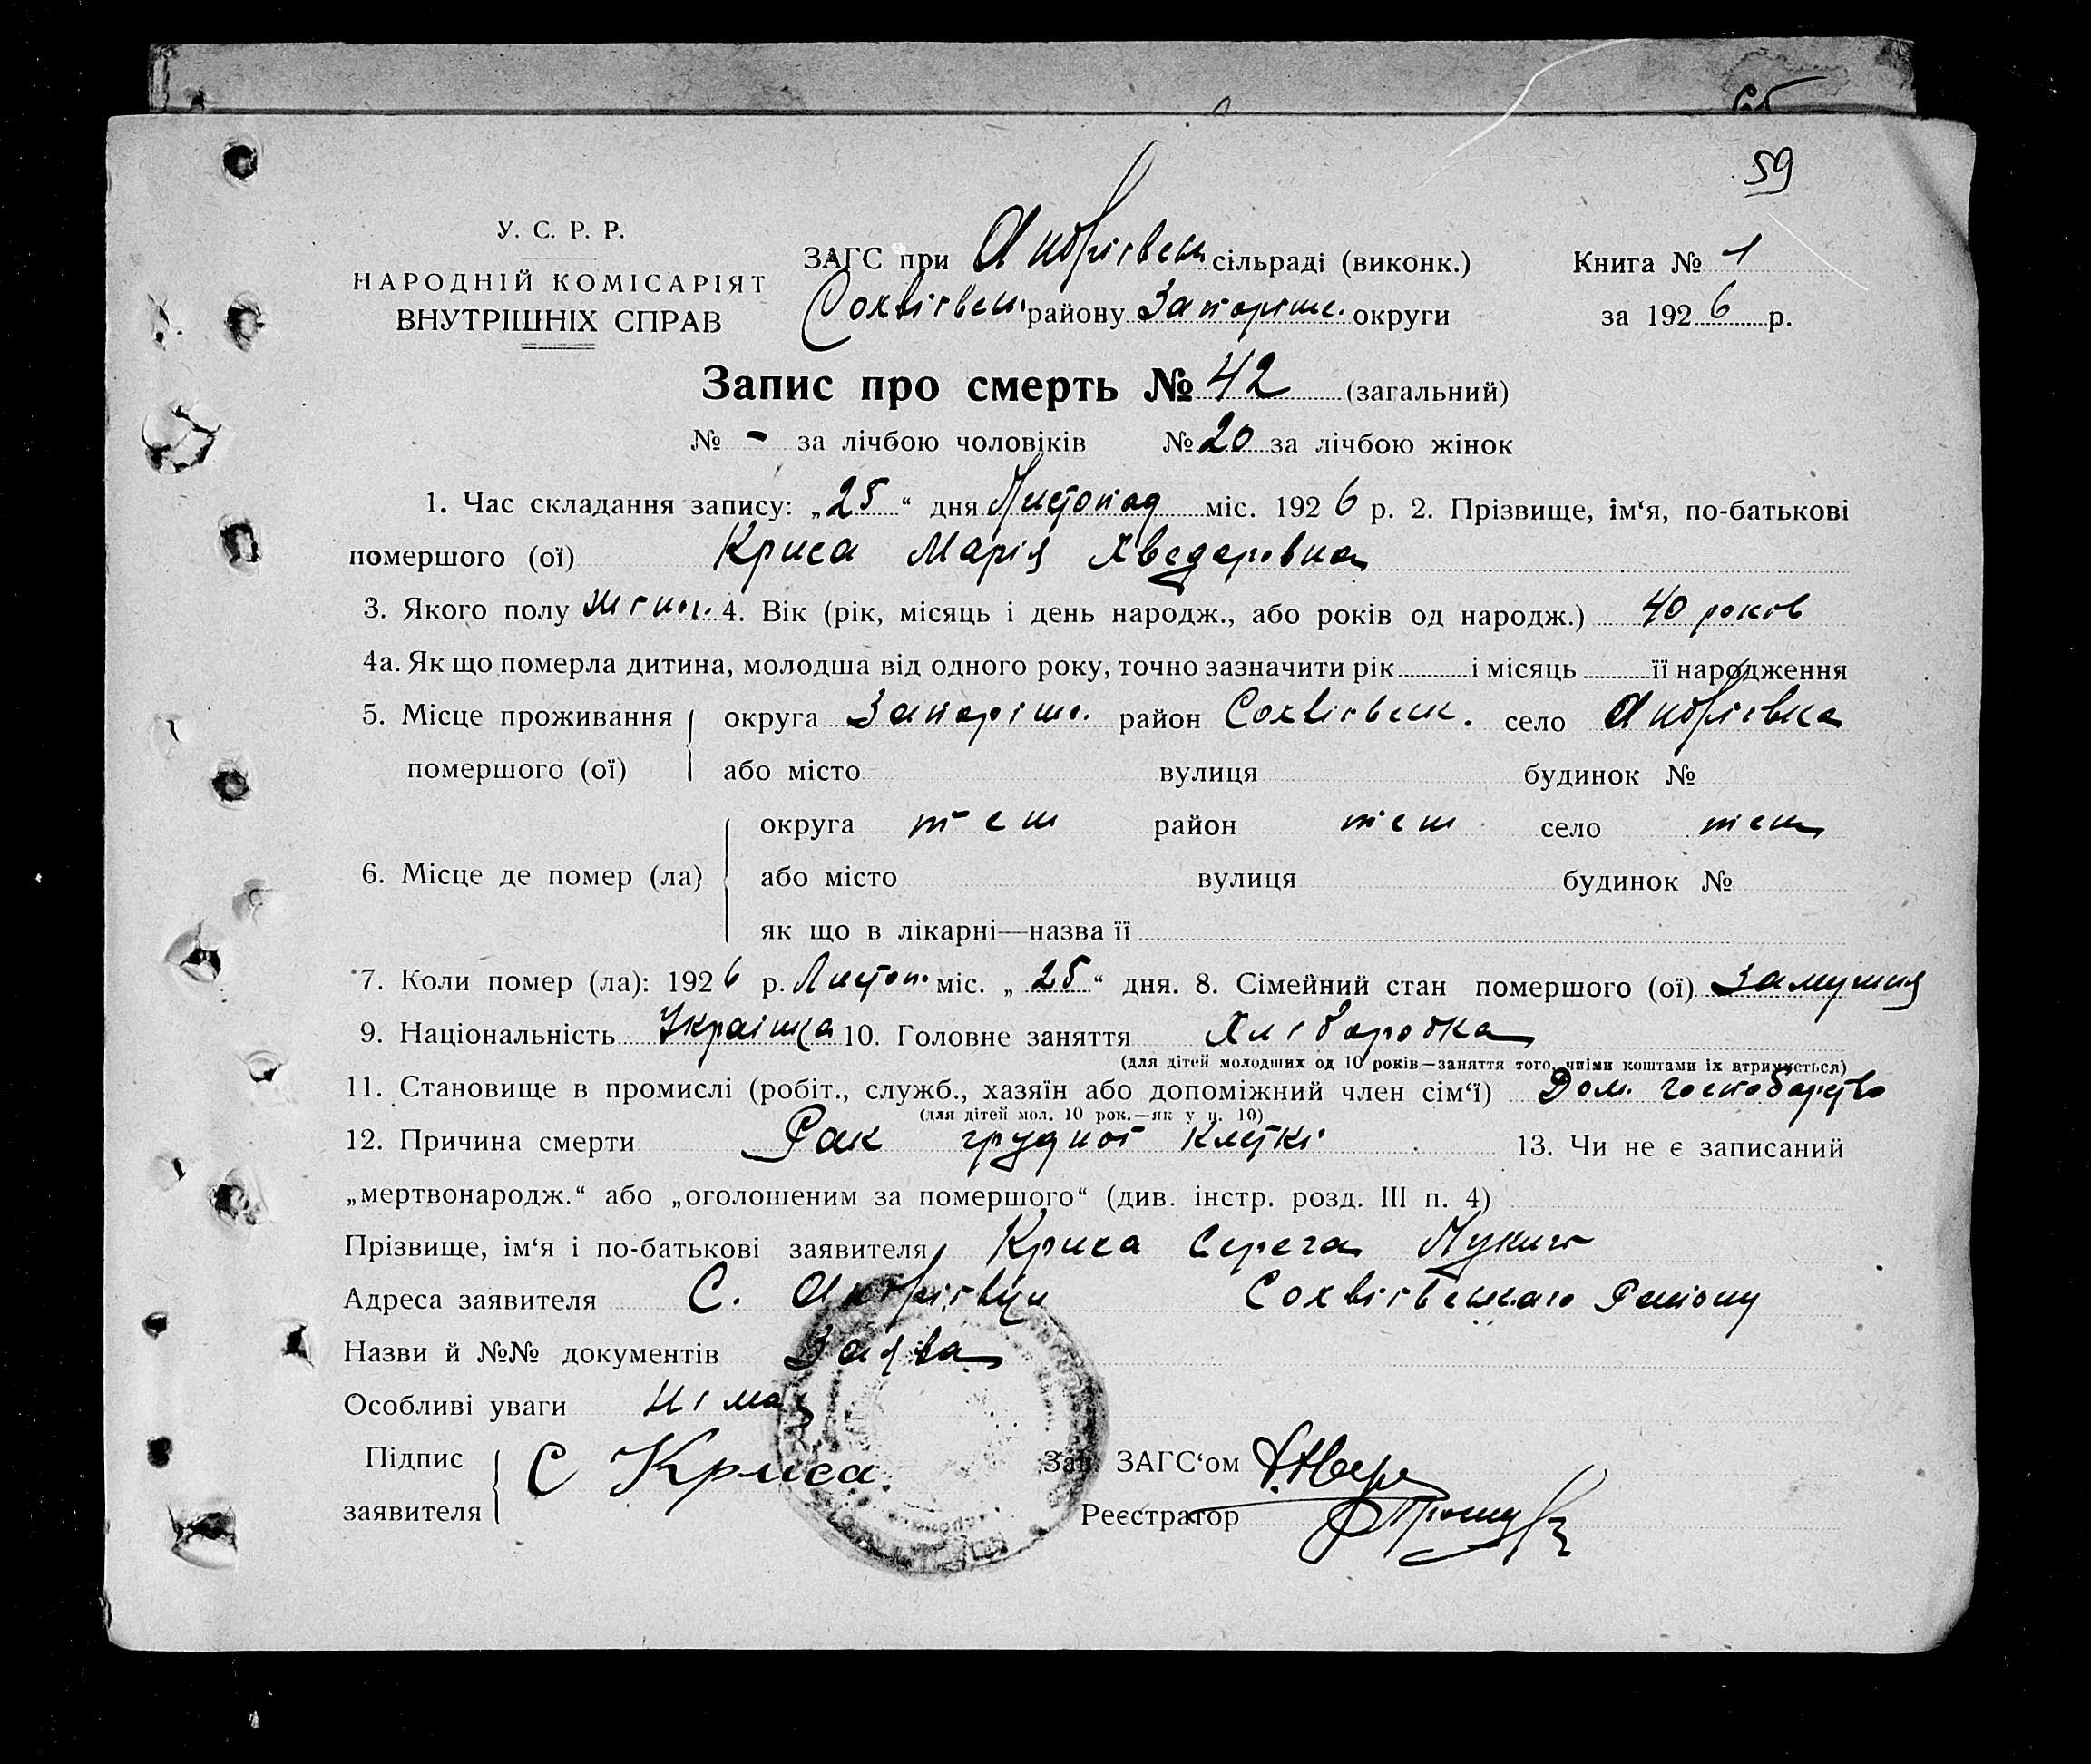 59
У. С. Р. Р.
НАРОДНІЙ КОМІСАРІЯТ
ВНУТРІШНІХ СПРАВ
ЗАГС при Андрієвськ сільраді (виконк.)
Софіївськ. району Запоріжс. округи
Книга № 1
за 1926 р.
Запис про смерть № 42 (загальний)
№ - за лічбою чоловіків № 20 за лічбою жінок
1. Час складання запису: „25“ дня Листопад міс. 1926 р. 2. Прізвище, ім‘я, по-батькові
помершого (ої) Криса Марія Хведеровна
3. Якого полу 4. Вік (рік, місяць і день народж., або років од народж.) 40 років
4а. Як що померла дитина, молодша від одного року, точно зазначити рік і місяць її народження
5. Місце проживання округа Запоріж. район село Андрієвка
помершого (ої) або місто вулиця будинок №
округа теж район теж село теж
6. Місце де помер (ла) або місто вулиця будинок №
як що в лікарні—назва її
7. Коли помер (ла): 1926 р. Листоп. міс. „25“ дня. 8. Сімейний стан помершого (ої) Замужня
9. Національність Українка 10. Головне заняття Хліборобка
(для дітей молодших од 10 років—заняття того, чиїми коштами їх втримується)
11. Становище в промислі (робіт., служб., хазяїн або допоміжний член сім‘ї) Дом. господарство
(для дітей мол. 10 рок.—як у п. 10)
12. Причина смерти Рак грудної клєткі 13. Чи не є записаний
„мертвонародж.“ або „оголошеним за помершого“ (див. інстр. розд. III п. 4)
Прізвище, ім‘я і по-батькові заявителя Криса Серега Лукич
Адреса заявителя С.
Назви й №№ документів Заява
Особливі уваги Німає
Підпис заявителя С Криса
Зав. ЗАГС‘ом
Реєстратор